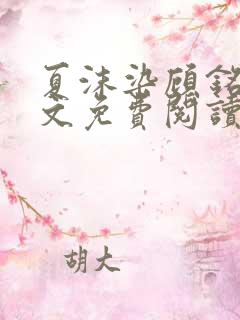 夏沫染顧銘
文免費閱讀
胡大